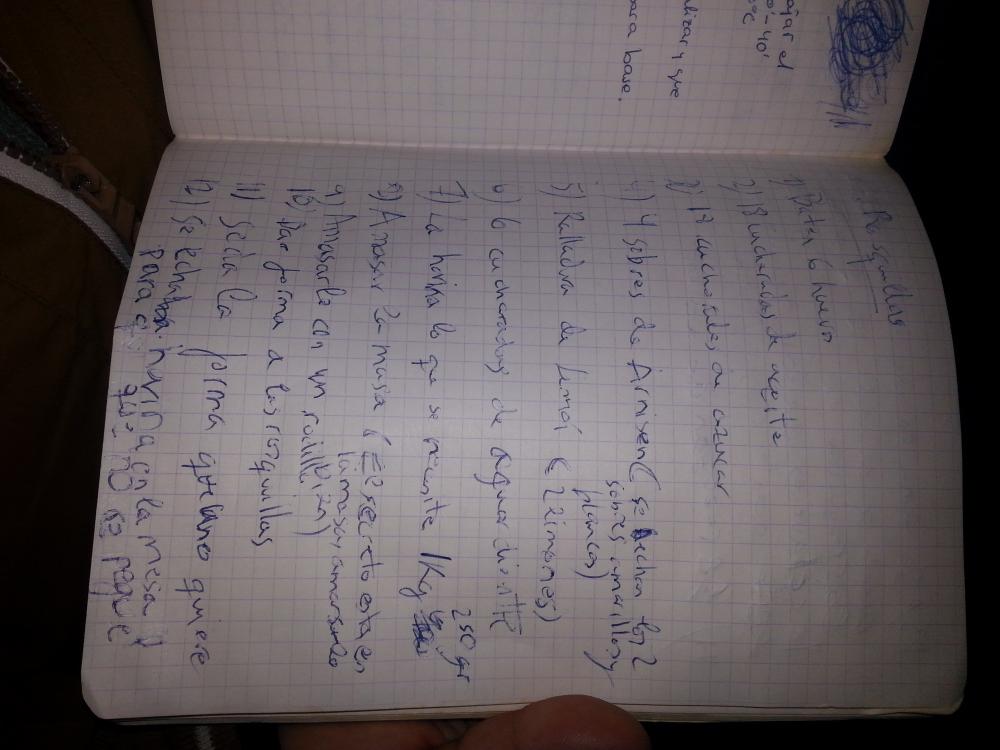 ajar el
0'-40'
ºc
alizar y que
para base.
Rosquillas
1) Batir 6 huevos
2) 18 cucharadas de aceite
3) 18 cucharadas de azucar
4) 4 sobres de Armisen (se hechan los 2
sobres amarillos y
blancos)
5) Ralladura de limón (2 limones)
6) 6 cucharadas de aguardiente
7) La harina lo que se necesite 1Kg y
250 gr
8) Amasar la masa (El secreto esta en
la masa y amarsado
9) Amasarlo con un rodillo
10) Dar forma a las rosquillas
11) Se da la forma que uno quiere
12) Se echaba harina en la mesa
para que no se pegue